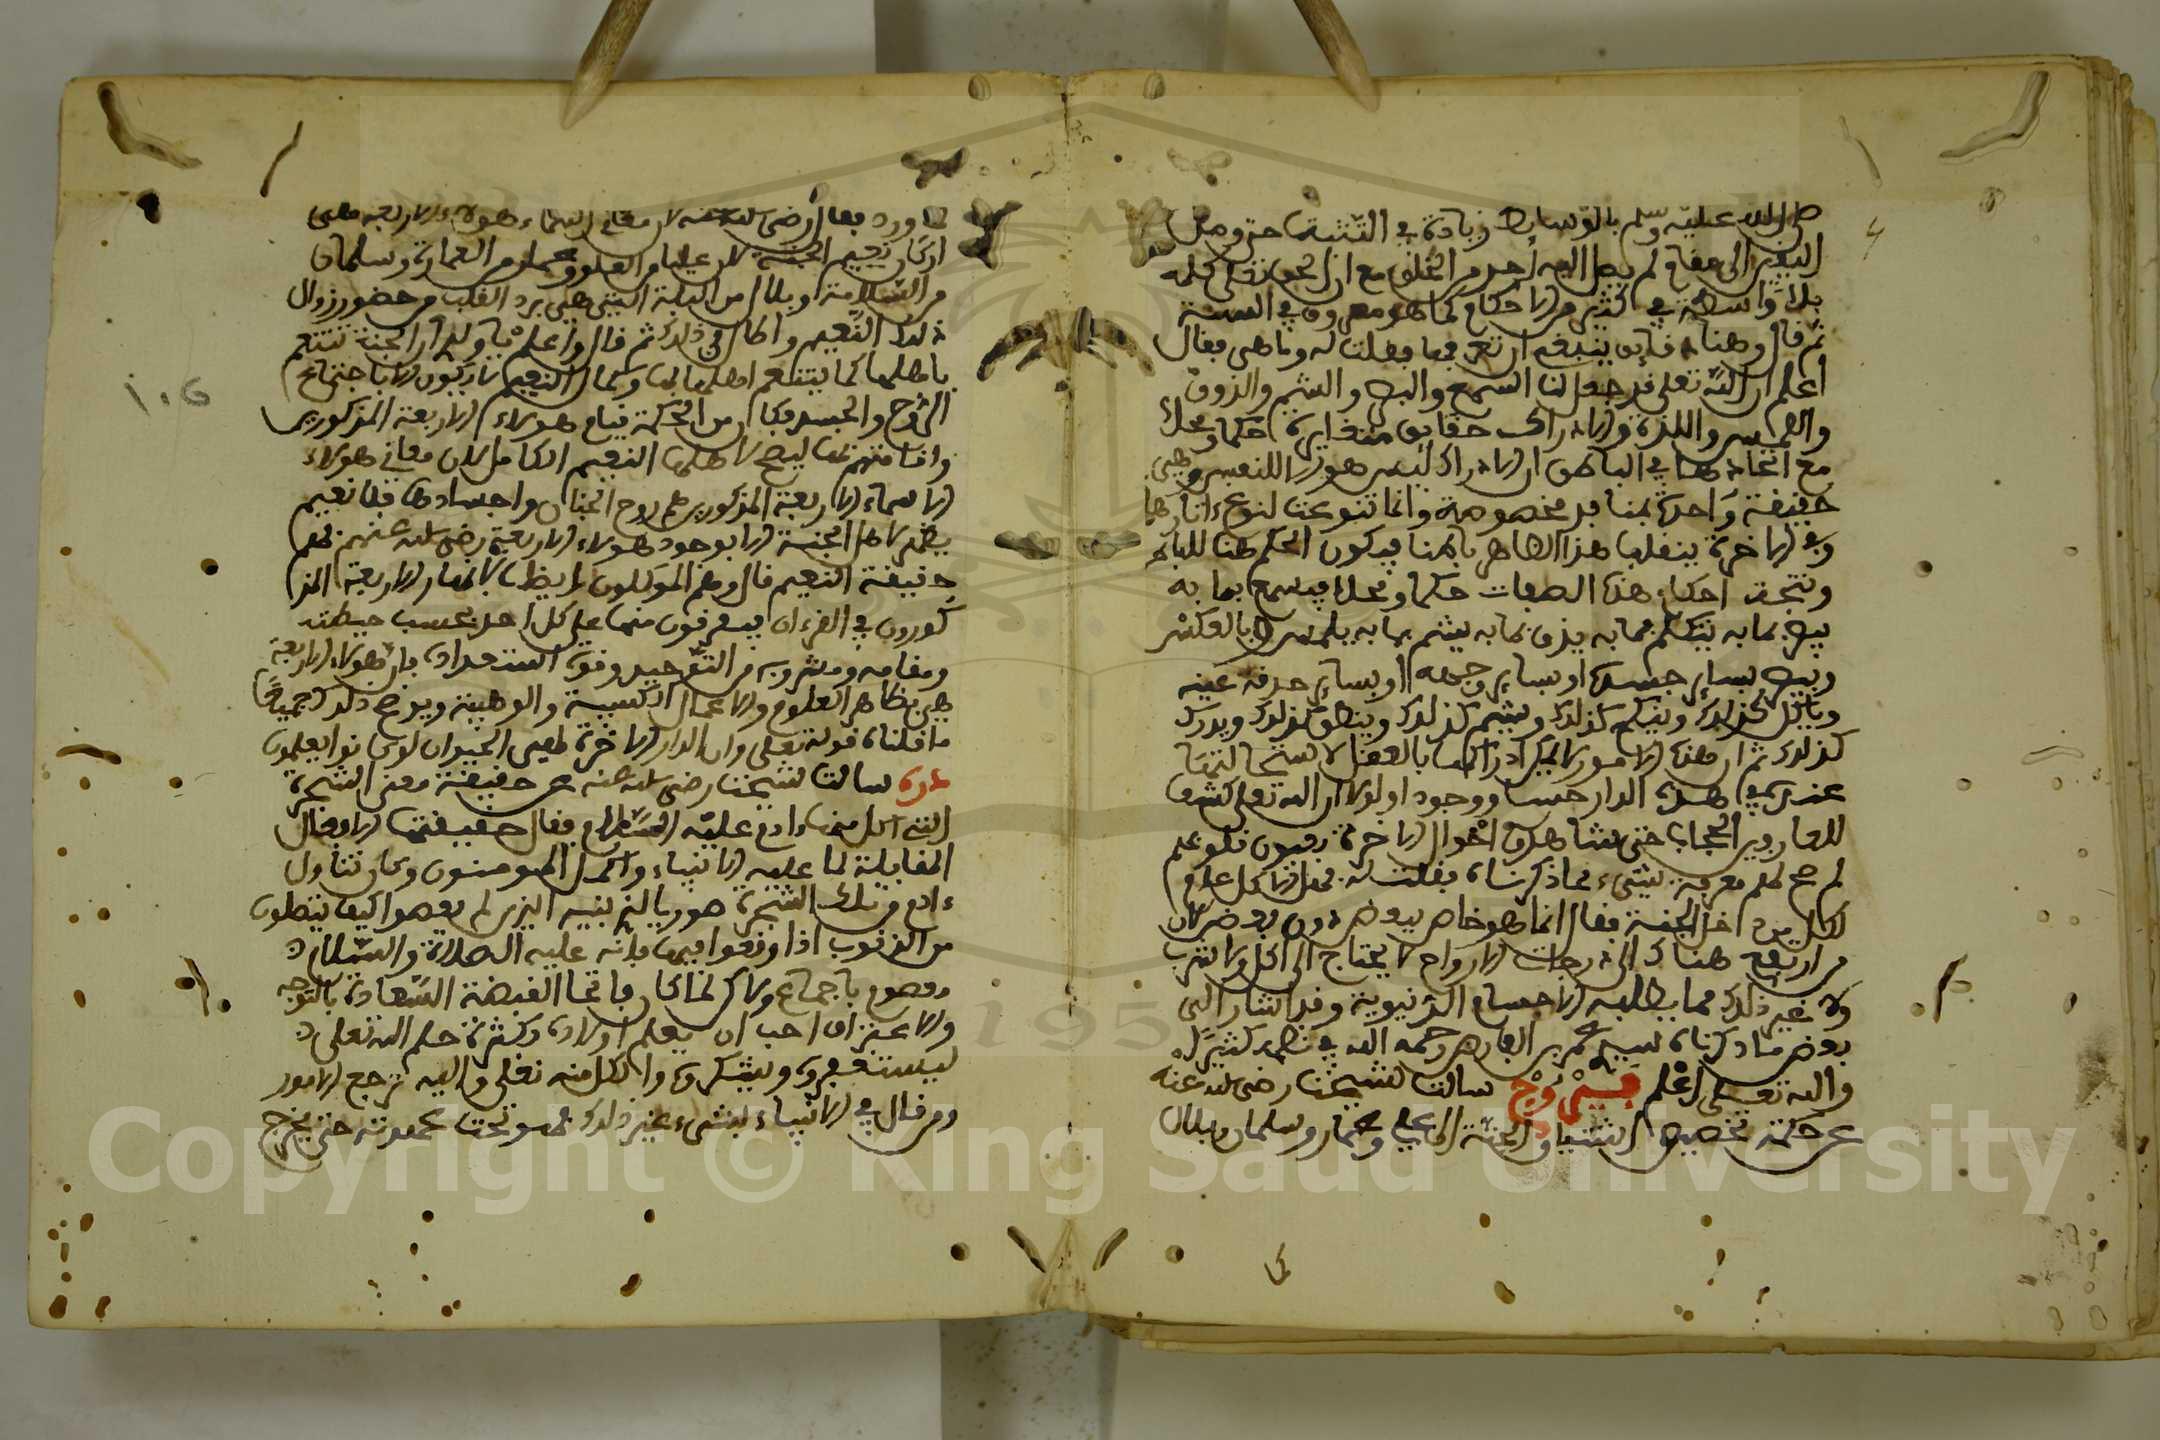 صلى الله عليه وسلم بالوسايط زيادة في التثبيت حتى وصل
اليقين الى مقام لم يصل اليه احد من الخلق مع ان الحق تعلى كلمه
بلا واسطة في كثير من الاحكام كما هو معروف في السنة
ثم قال وهنا دقايق ينبغي ان تعرفها فقلت له وما هي فقال
اعلم ان الله تعلى قد جعل لنا السمع والبصر والشم والذوق
واللمس واللذة والادراك حقايق متغايرة حكما ومحلا
مع اتحادها في الباطن اذ الادراك ليس هو الا للنفس وهي
حقيقة واحدة بمنا بر مخصوصة وانما تنوعت لنوع ءاثارها
وفي الاخرة ينقلب هذا الظاهر باطنا فيكون الحكم هنا للباطن
وتتحد احكام هذه الصفات حكما ومحلا فيسمع بما به
يبصر بما به يتكلم بما به يذوق بما به يشم بما به يلمس وبالعكس
ويبصر بساير جسده او بساير وجهه او بساير حدقة عينه
وياكل كذلك ويتكلم كذلك ويشم كذلك وينطق كذلك ويدرك
كذلك ثم ان هذه الامور لا يمكن ادراكها بالعقل لاستحالتها
عنده في هذه الدار حسا ووجودا ولولا ان الله تعلى كشف
للعارفين الحجاب حتى شاهدوا احوال الاخرة بعيون قلوبهم
لم صح لهم معرفة شيء مما ذكرناه فقلت له فهل هذا كل عام
لكل من دخل الجنة فقال انما هو خاص ببعض دون بعض لان
من ارتفع هناك الى درجات الارواح لا يحتاج الى اكل ولا شرب
ولا غير ذلك مما يطلبه الاجسام الدنيوية وقد اشار الى
بعض ما ذكرناه سيدي عمر بن الفارض رحمه الله في نظمه كثيرا
والله تعلى اعلم فيروزج سالت شيخنا رضى الله عنه
عن حكمة تخصيص اشتياق الجنة الى علي وعمار وسلمان وبلال
كما ورد فقال رضى الله عنه لان معاني اسماء هولاء الاربعة هي
اركان نعيم الجنة لان عليا من العلو وعمار من العمارة وسلمان
من السلامة وبلال من البلة التي هي برد القلب من حضور زوال
ذلك النعيم واطال في ذلك ثم قال واعلم يا ولد ان الجنة تتنعم
باهلها كما يتنعم اهلها بها وكمال النعيم لا يكون الا باجتماع
الروح والجسد فكان من الحكمة قيام هولاء الاربعة المذكورين
واقامتهم بها ليصح لاهلها النعيم الكامل لان معاني هولاء
الاسماء الاربعة المذكورين هم روح الجنان واجسادها فلا نعيم
يظهر لاهل الجنة الا بوجود هولاء الاربعة رضى الله عنهم فهم
حقيقة النعيم قال وهم الموكلون ايضا بالانهار الاربعة المذ
كورون في القرءان فيفرقون منها على كل احد بحسب حيطته
ومقامه ومشروبه من التوحيد وقوة استعداده فان هولاء الاربعة
هي مظاهر العلوم والاعمال الكسبية والوهبية ويوضح ذلك جميعا
ما قلناه قوله تعلى وان الدار الاخرة لهي الحيوان لو كانوا يعلمون
درة سالت شيخنا رضى الله عنه عن حقيقة معنى الشجرة
التي اكل منها ءادم عليه السلام فقال حقيقتها الافعال
المقابلة لما عليه الانبياء واكمل المومنون وكان تناول
ءادم من تلك الشجرة صوريا لنبيه بنيه الذين لم يعصموا كيف ينطلون
من الذنوب اذا وقعوا فيها فانه عليه الصلاة والسلام
معصوم باجماع ولا كل ما كان فاتحا القبضة السعادة بالتوجه
والاعتراف احب ان يعلم اولاده كثرة حلم الله تعلى
ليستغفروه ويشكروه والكل منه تعلى واليه ترجع الامور
ومن قال في الانبياء بشيء غير ذلك فهو تحت عهدته حتى يخرج